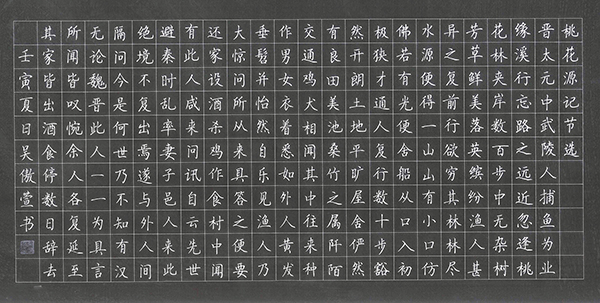 桃花源记节选
晋太元中武陵人捕鱼为业
缘溪行忘路之远近忽逢桃
花林夹岸数百步中无杂树
芳草鲜美落英缤纷渔人甚
异之复前行欲穷其林林尽
水源便得一山山有小口仿
佛若有光便舍船从口入初
极狭才通人复行数十步豁
然开朗土地平旷屋舍俨然
有良田美池桑竹之属阡陌
交通鸡犬相闻其中往来种
作男女衣着悉如外人黄发
垂髫并怡然自乐见渔人乃
大惊问所从来具答之便要
还家设酒杀鸡作食村中闻
有此人咸来问讯自云先世
避秦时乱率妻子邑人来此
绝境不复出焉遂与外人间
隔问今是何世乃不知有汉
无论魏晋此人一一为具言
所闻皆叹惋余人各复延至
其家皆出酒食停数日辞去
壬寅夏日吴傲萱书